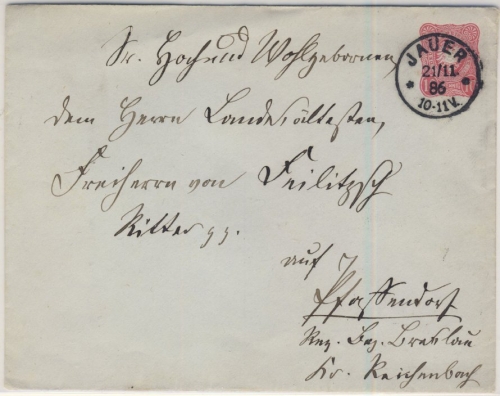 JAUER
21/11.
86
10-11V.
Sr. Hoch und Wohlgebornen,
dem Herrn Landesältesten,
Freiherrn von Feilitzsch
Ritter pp.
auf
Pfaffendorf
Reg. Bez. Breslau
Kr. Reichenbach